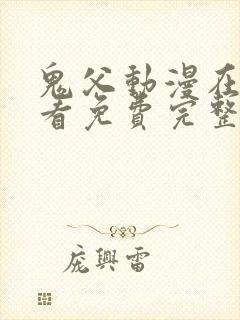 鬼父動漫在
看免費完整
龐興雷